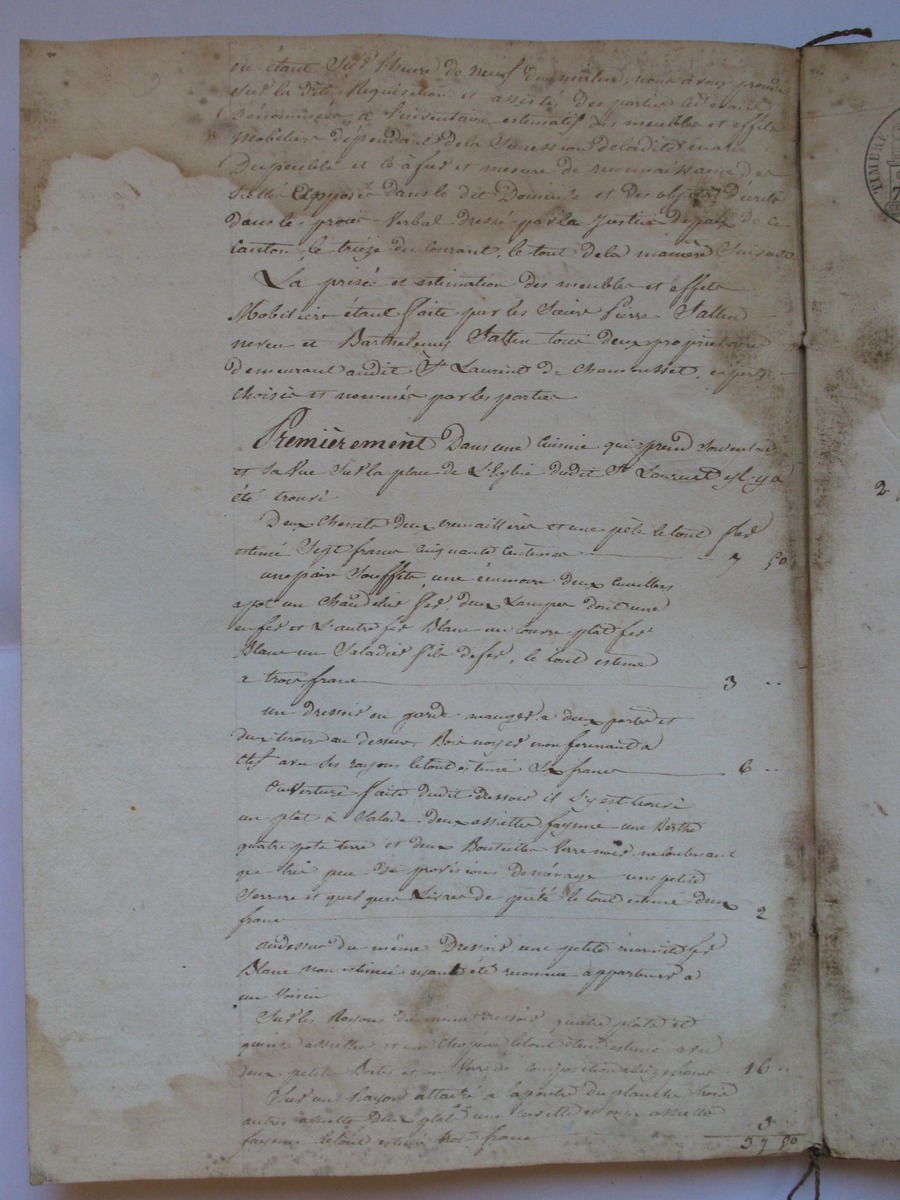 ou étant Sur l'heure de neuf du matin, nous avons procédé
Sur la dite Requisition et assisté des parties cidevant
dénommées, a l'inventaire estimatif des meubles et effets
Mobiliers dépendant de la Succession de ladite
et le à fur et mesure de reconnaissance des
Scellés Apposés dans le dit Domicile et des objets Décrits
dans le procès Verbal dressé par la Justice de paix de ce
Canton, le treize du Courant, le tout de la manière Suivante
La prisée et estimation des meubles et effets
Mobiliers étant faite par les Sieurs Pierre Jullin
neveu et Barthelemy Jullin tous deux propriétaires
demeurant audit St Laurent de Chamousset, experts
choisis et nommés par les parties
Premièrement Dans une Cuisine qui prend Son entrée
et sa Vue Sur la place de L'Eglise dudit St Laurent, il y a
été trouvé
Deux Chenets deux cremaillères et une pèle le tout fer
estimé Sept francs Cinquante Centimes 7 50
une paire Soufflets, une deux Cuillers
a pot un Chandelier fer, deux Lampes dont une
en fer et L'autre fer Blanc un Couvre plat fer
Blanc un Saladier fil de fer, le tout estimé
a trois francs 3 "
un dressoir ou garde-manger a deux portes et
deux tiroirs au dessus, Bois noyer non fermant a
Clef avec les rayons le tout estimé Six francs 6 "
Ouverture faite dudit Dressoir il S'y est trouvé
un plat à Salade deux assiettes fayence une Berthe
quatre pots terre et deux Bouteilles Verre noir, ne Contenant
que très peu de provisions de ménage une petite
Serrure et quelques Livres de piété le tout estimé deux
francs 2
audessus du même Dressoir une petite marmite fer
Blanc non estimée ayant été reconnue appartenir a
un Voisin
Sur les Rayons du même Dressoir quatre plats et
quinze assiettes et une le tout étain estimé avec
deux petites Boites et un Verre de composition Seize francs 16 "
Sur un Rayon attaché a la poutre du planché trois
autres assiettes deux plats une et onze assiettes
fayence le tout estimé trois francs 3
37 50
2
TIMBRE